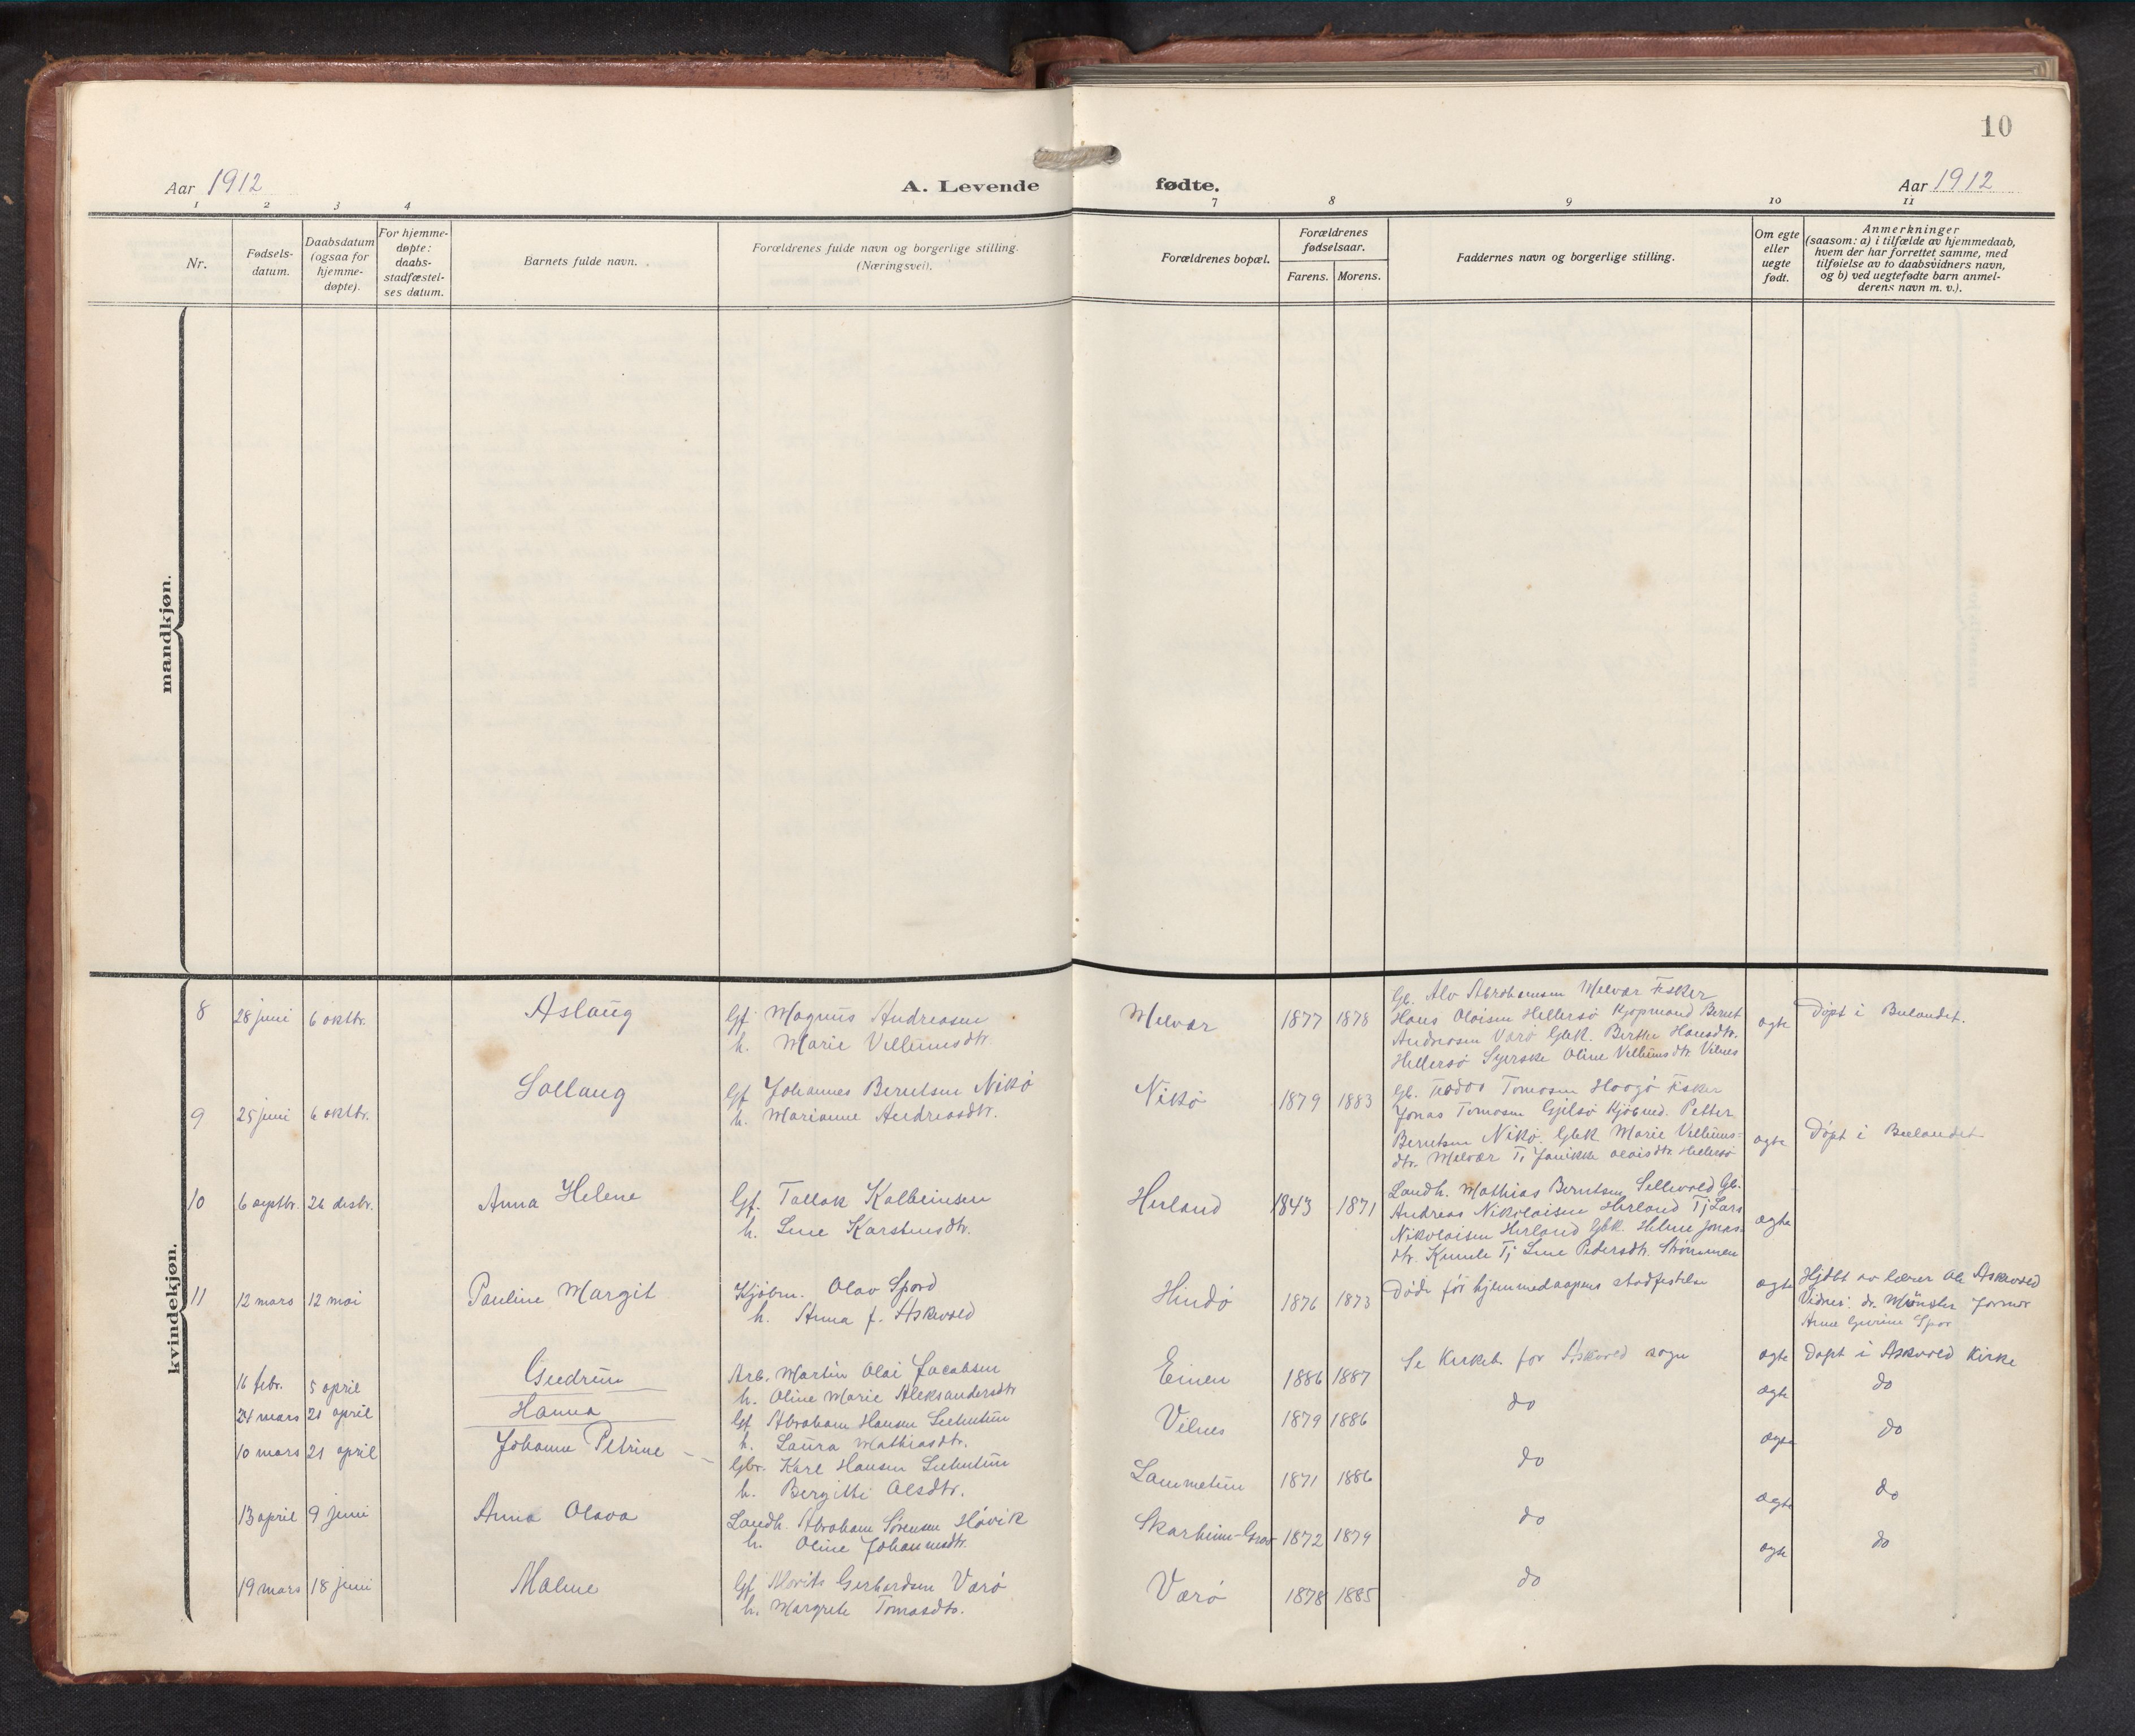 10
Aar 1912
A. Levende fødte.
Aar 1912
1 2 3 4 7 8 9 10 11
Nr.
Fødsels-
datum.
Daabsdatum
(ogsaa for
hjemme-
døpte).
For hjemme-
døpte:
daabs-
stadfæstel-
ses datum.
Barnets fulde navn.
Forældrenes fulde navn og borgerlige stilling.
(Næringsvei).
Forældrenes bopæl.
Forældrenes
fødselsaar.
Farens. Morens.
Faddernes navn og borgerlige stilling.
Om egte
eller
uegte
født.
Anmerkninger
(saasom: a) i tilfælde av hjemmedaab,
hvem der har forrettet samme, med
tilføielse av to daabsvidners navn,
og b) ved uegtefødte barn anmel-
derens navn m. v.).
mandkjøn.
kvindekjøn.
8 28 juni 6 oktbr. Aslaug
Gf. Magnus Andreasen
h. Marie Vellumsdtr.
Melvær 1877 1878
Gb. Alv Abrahamsen Melvær Fisker
Hans Olaisen Hellersø Kjøpmand Berent
Andreasen Varø Gbk. Berthe Hansdtr.
Hellersø Syerske Oline Vellumsdtr. Vilnes
egte
Døpt i Bulandet.
9 25 juni 6 oktbr. Sollaug
Gf Johannes Berntsen Nikø
h. Marianne Andreasdtr.
Nikø 1879 1883
Gb. Tomasen Fisker
Jonas Tomasen Gjelsø Kjøbmd. Petter
Berntsen Nikø. Gbk. Marie Vellums-
dtr. Melvær Tj Janikke Olaisdtr. Hellersø
egte
Døpt i Bulandet
10 6 septbr. 26 desbr. Anna Helene
Gf. Tollak Kolbeinsen
h. Line Karstensdtr.
Herland 1843 1871
Landh. Mathias Berntsen Sellevold Gb.
Andreas Nikolaisen Herland Tj Lars
Nikolaisen Herland Gbk. Helene Jonas-
dtr. Tj Line Pedersdtr. Strømmen
egte
11 12 mars 12 mai Pauline Margit
Kjøbm. Olav Spord
h. Anna f. Askvold
Hindø 1876 1873
Døde før hjemmedaapens stadfestelse
egte
Hjdbt av lærer Ole Askvold
Vidner: dr. Münster Jormor
Anne Spor
16 febr. 5 april Gudrun
Arb. Martin Olai Jacobsen
h. Oline Marie Aleksandersdtr
Einen 1886 1887
Se Kirkeb. for Askvold sogn
egte
Døpt i Askvold Kirke
24 mars 21 april Hanna
Gf Abraham Hansen
h. Laura Mathiasdtr.
Vilnes 1879 1886
do
egte
do
10 mars 21 april Johanne Petrine
Gbr. Karl Hansen
h. Bergitte Olsdtr.
Lammetun 1871 1886
do
egte
do
13 april 9 juni Anna Olava
Landh. Abraham Sørensen Høvik
h. Oline Johannesdtr.
1872 1879
do
egte
do
19 mars 18 juni Malene
Gf Morits Gerhardsen Varø
h. Margrete Tomasdtr.
Værø 1878 1885
do
egte
do